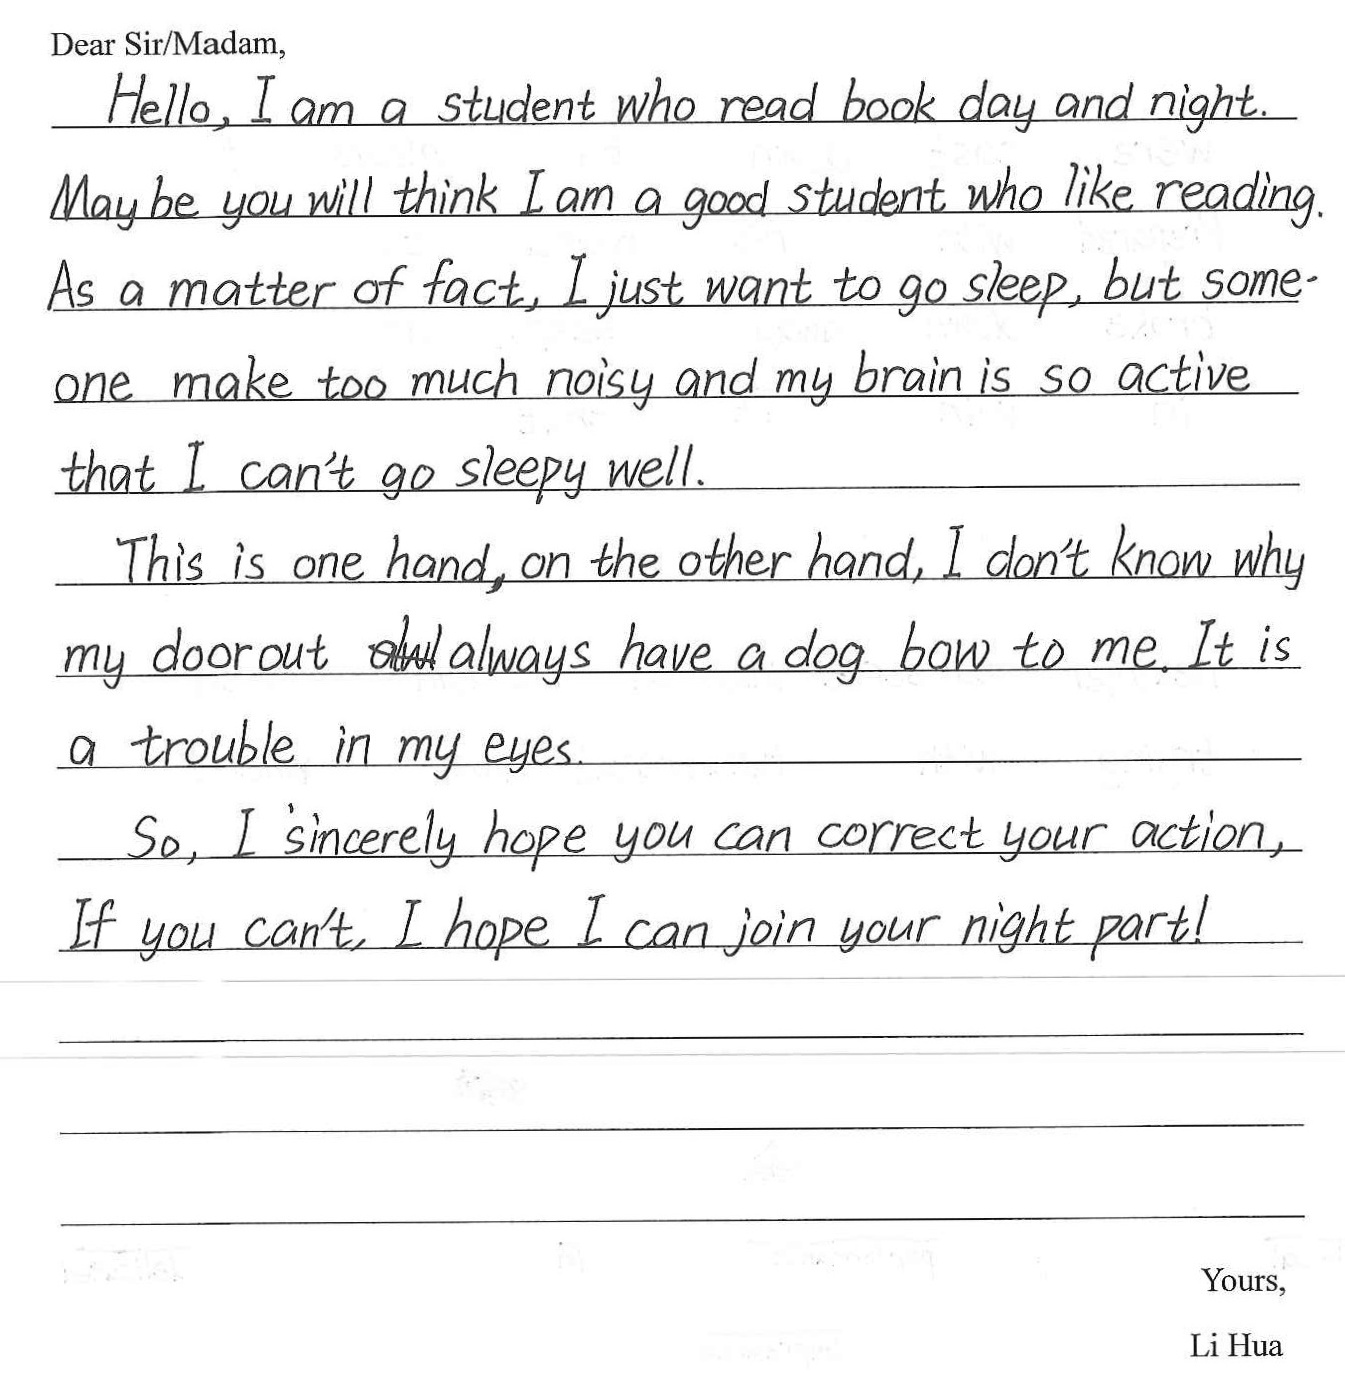 Dear Sir/Madam,
Hello, I am a student who read book day and night.
Maybe you will think I am a good student who like reading.
As a matter of fact, I just want to go sleep, but some-
one make too much noisy and my brain is so active
that I can't go sleepy well.
This is one hand, on the other hand, I don't know why
my door out always have a dog bow to me. It is
a trouble in my eyes.
So, I sincerely hope you can correct your action,
If you can't, I hope I can join your night part!
Yours,
Li Hua